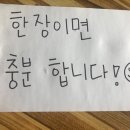 한장이면
충분 합니다!